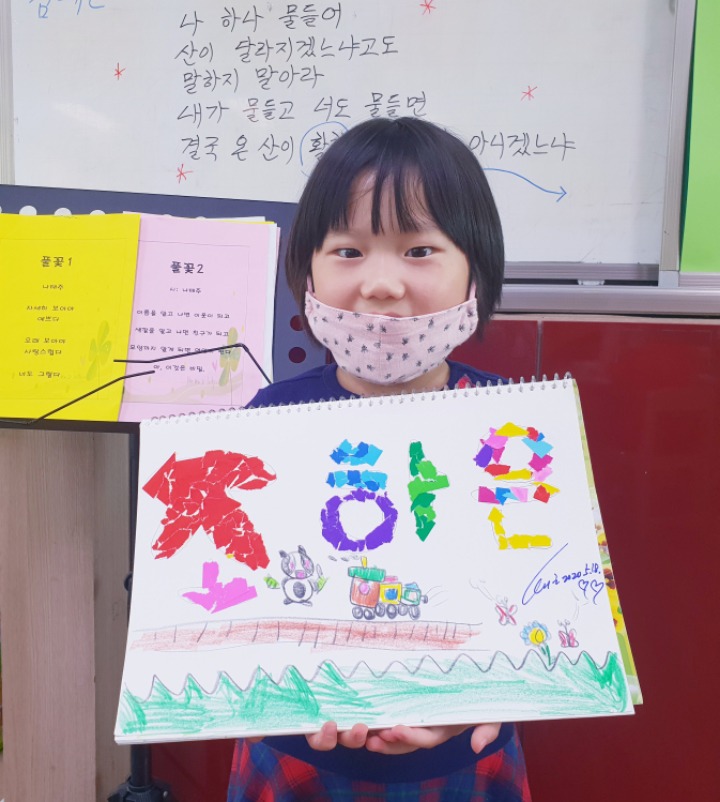 나 하나 물들어
산이 달라지겠느냐고도
말하지 말아라
내가 물들고 너도 물들면
결국 온 산이 활 아니겠느냐
풀꽃1
나태주
자세히 보아야
예쁘다
오래 보아야
사랑스럽다
너도 그렇다.
풀꽃2
시: 나태주
이름을 알고 나면 이웃이 되고
색깔을 알고 나면 친구가 되고
모양까지 알게 되면
아, 이것은 비밀.
주하은
2020.5.18.